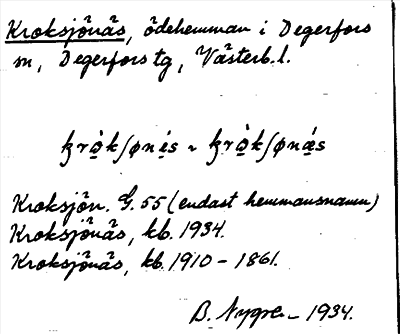 Kroksjönäs, ödehemman i Degerfors
sn, Degerfors tg, Västerb. l.
krò̜kʃøné̜s ~ krò̜kʃønǽs
Kroksjön. G. 55 (endast hemmansnamn)
Kroksjönäs, kb. 1934.
Kroksjönäs, kb. 1910 - 1861.
B. Nygre. - 1934.